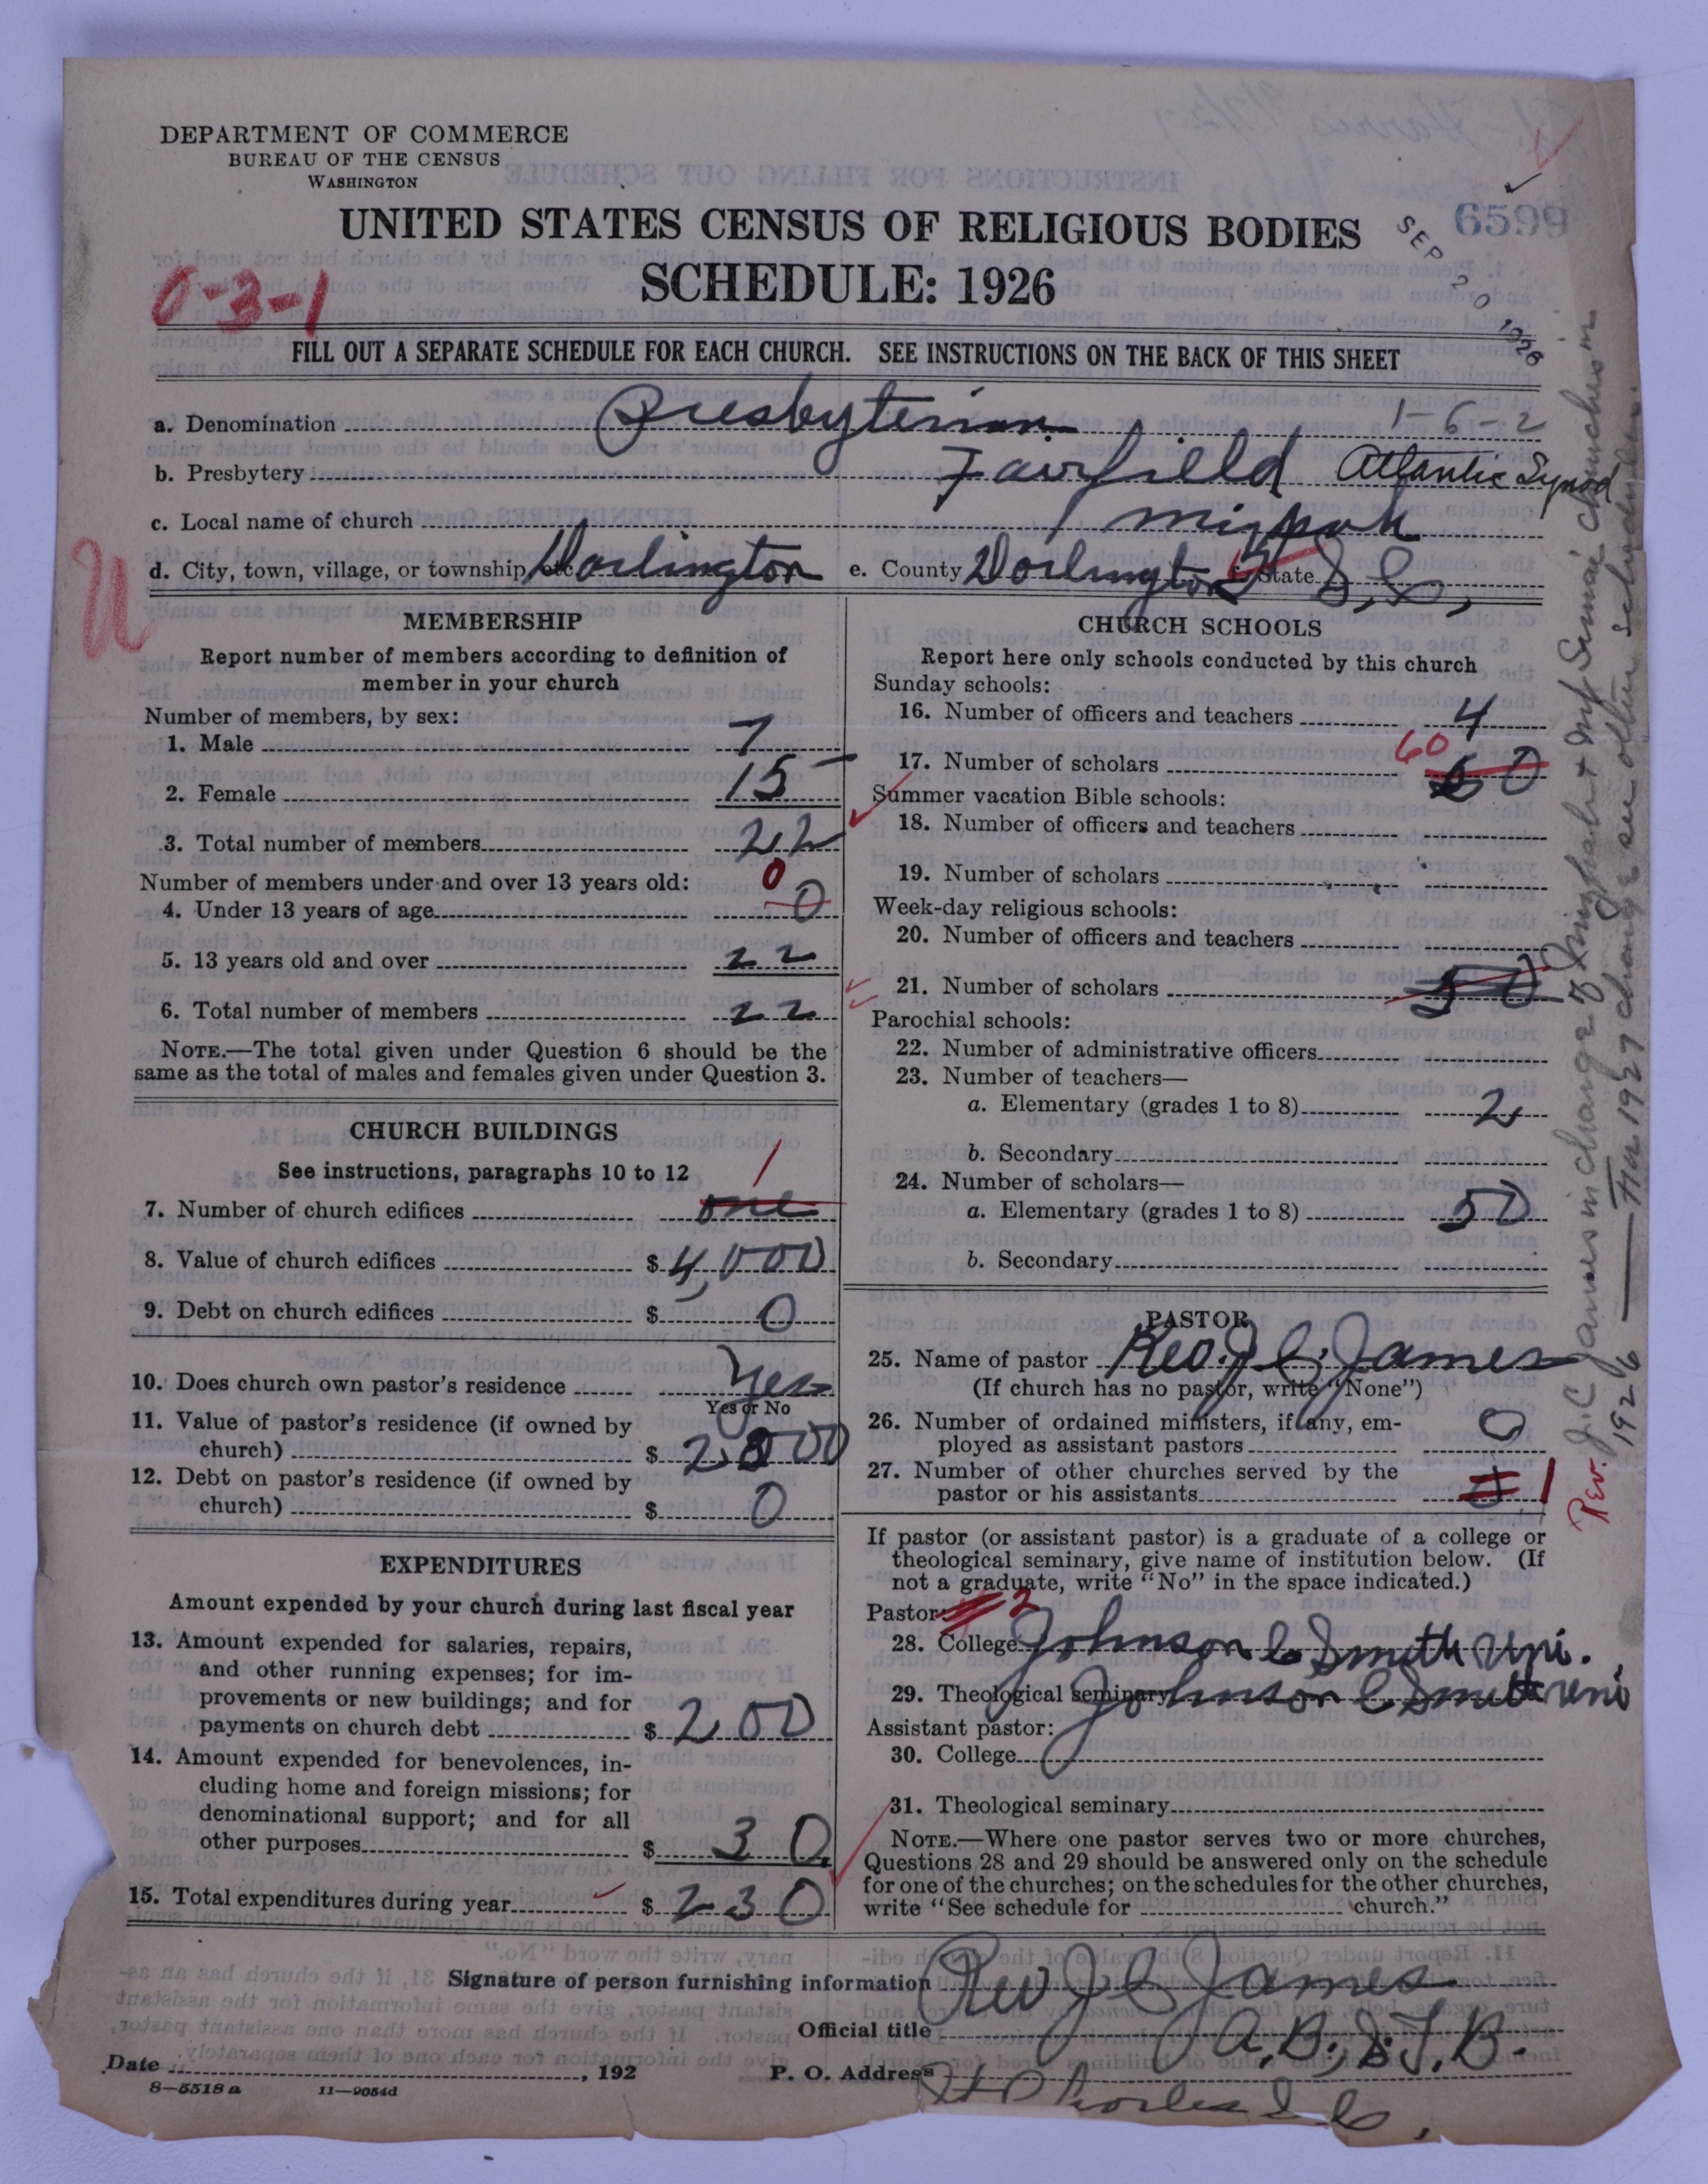 DEPARTMENT OF COMMERCE
BUREAU OF THE CENSUS
WASHINGTON
UNITED STATES CENSUS OF RELIGIOUS BODIES
SCHEDULE: 1926
6599
SEP 20 1926
0-3-1
FILL OUT A SEPARATE SCHEDULE FOR EACH CHURCH. SEE INSTRUCTIONS ON THE BACK OF THIS SHEET
a. Denomination Presbyterian 1-6-2
b. Presbytery Fairfield Atlantic Synod
c. Local name of church Mizpah
d. City, town, village, or township, etc. Darlington e. County Darlington State S.C.
U
MEMBERSHIP
Report number of members according to definition of
member in your church
Number of members, by sex:
1. Male 7
2. Female 15
3. Total number of members 22
Number of members under and over 13 years old: 0
4. Under 13 years of age 0
5. 13 years old and over 22
6. Total number of members 22
NOTE.—The total given under Question 6 should be the
same as the total of males and females given under Question 3.
CHURCH BUILDINGS
See instructions, paragraphs 10 to 12 1
7. Number of church edifices one
8. Value of church edifices $ 4,000
9. Debt on church edifices $ 0
10. Does church own pastor's residence Yes
Yes or No
11. Value of pastor's residence (if owned by
church) $ 2,000
12. Debt on pastor's residence (if owned by
church) $ 0
EXPENDITURES
Amount expended by your church during last fiscal year
13. Amount expended for salaries, repairs,
and other running expenses; for im-
provements or new buildings; and for
payments on church debt $ 200
14. Amount expended for benevolences, in-
cluding home and foreign missions; for
denominational support; and for all
other purposes $ 30
15. Total expenditures during year $ 230
CHURCH SCHOOLS
Report here only schools conducted by this church
Sunday schools:
16. Number of officers and teachers 4
17. Number of scholars 60 60
Summer vacation Bible schools:
18. Number of officers and teachers
19. Number of scholars
Week-day religious schools:
20. Number of officers and teachers
21. Number of scholars 50
Parochial schools:
22. Number of administrative officers
23. Number of teachers—
a. Elementary (grades 1 to 8) 2
b. Secondary
24. Number of scholars—
a. Elementary (grades 1 to 8) 50
b. Secondary
PASTOR
25. Name of pastor Rev. J. C. James
(If church has no pastor, write "None")
26. Number of ordained ministers, if any, em-
ployed as assistant pastors 0
27. Number of other churches served by the
pastor or his assistants 1
If pastor (or assistant pastor) is a graduate of a college or
theological seminary, give name of institution below. (If
not a graduate, write "No" in the space indicated.)
Pastor: 2
28. College Johnson C Smith Uni.
29. Theological seminary Johnson C Smith Uni
Assistant pastor:
30. College
31. Theological seminary
NOTE.—Where one pastor serves two or more churches,
Questions 28 and 29 should be answered only on the schedule
for one of the churches; on the schedules for the other churches,
write "See schedule for church."
Signature of person furnishing information Rev J C James
Official title A.B., S.T.B.
Date , 192 P. O. Address St Charles S.C.
8—5518 a 11—9054d
Rev. J. C. James in charge of Mizpah & Mt Sinai churches in
1926 — For 1927 change see other schedule.